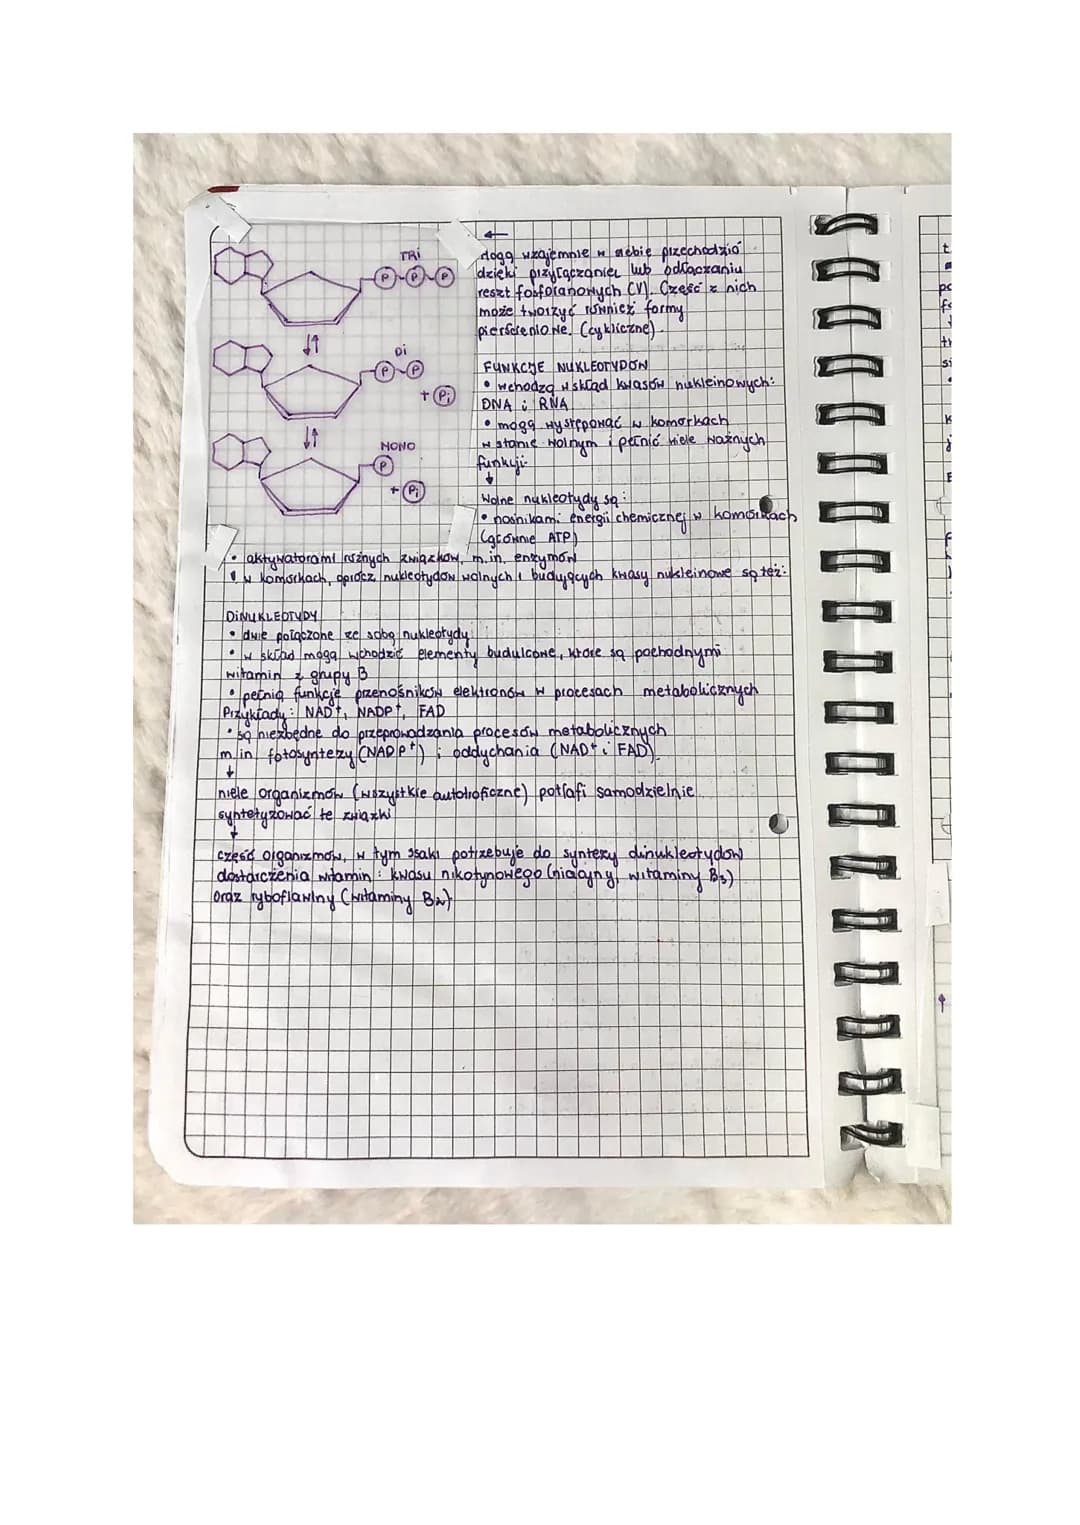 TRI
P P P
Di
P P
+ Pi
MONO
P
+ Pi
←
Mogą wzajemnie w siebie przechodzić
dzięki przyłączaniu lub odłączaniu
reszt fosforanowych (V). Część z nich
może tworzyć również formy
pierścieniowe. (cykliczne).
FUNKCJE NUKLEOTYDÓW
• wchodzą w skład kwasów nukleinowych:
DNA i RNA
• mogą występować w komórkach
w stanie wolnym i pełnić wiele ważnych
funkcji
↓
Wolne nukleotydy są:
• nośnikami energii chemicznej w komórkach
(głównie ATP)
• aktywatorami różnych związków, m.in. enzymów
! w komórkach, oprócz nukleotydów wolnych i budujących kwasy nukleinowe są też:
DiNUKLEOTYDY
• dwie połączone ze sobą nukleotydy
• w skład mogą wchodzić elementy budulcowe, które są pochodnymi
witamin z grupy B
• pełnią funkcję przenośników elektronów w procesach metabolicznych
Przykłady: NAD+, NADP+, FAD
• są niezbędne do przeprowadzania procesów metabolicznych
m.in. fotosyntezy (NADP+) i oddychania (NAD+ i FAD).
↓
wiele organizmów (wszystkie autotroficzne) potrafi samodzielnie
syntetyzować te związki
↓
część organizmów, w tym ssaki potrzebuje do syntezy dinukleotydów
dostarczenia witamin: kwasu nikotynowego (niacyny, witaminy B3)
oraz ryboflawiny (witaminy B2).